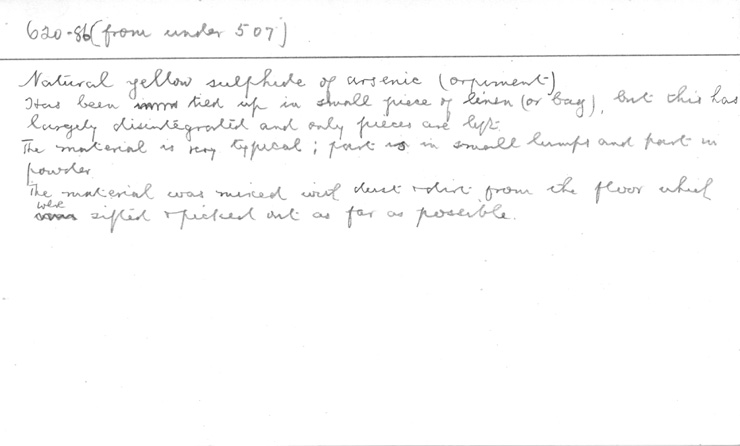 620-86 (from under 507)
Natural yellow sulphide of arsenic (orpiment)
Has been tied up in small piece of linen (or bag), but this has
largely disintegrated and only pieces are left.
The material is very typical; part is in small lumps and part in
powder
The material was mixed with dust & dirt from the floor which
were sifted & picked out as far as possible.